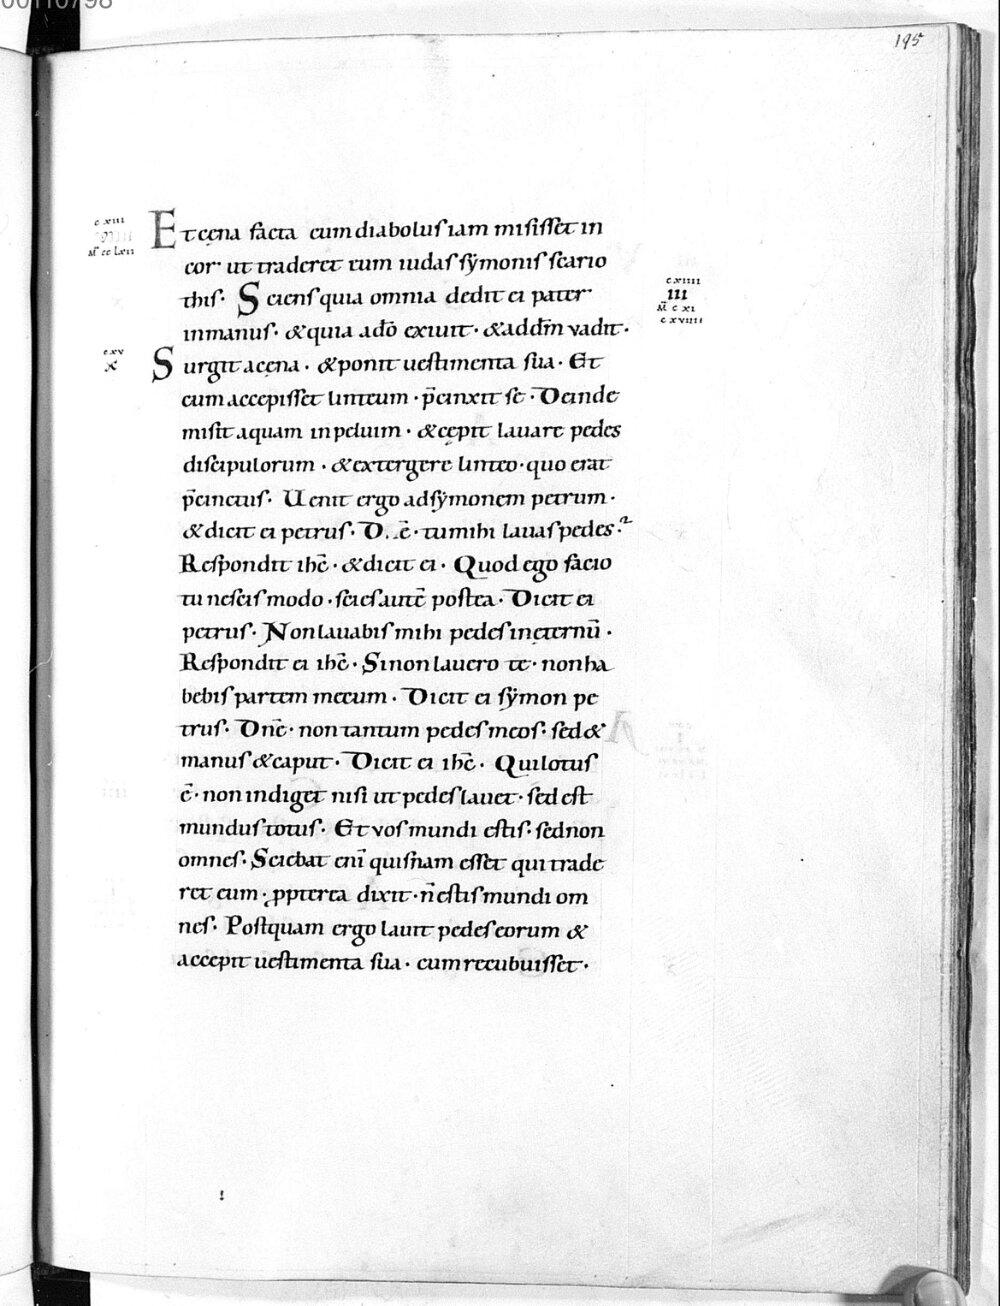 00110798
195
c xiii
Mꝰ cc lxii
Et cęna facta cum diabolus iam misisset in
cor· ut traderet eum iudas sẏmonis scario
this· Sciens quia omnia dedit ei pater
inmanus· &quia ado̅ exiuit· &addm̅ vadit·
c xiiii
iii
M̅ c xi
c xviiii
c xv
x
Surgit acęna· &ponit uestimenta sua· Et
cum accepisset linteum· p̅cinxit se· Deinde
misit aquam inpeluim· &cępit lauare pedes
discipulorum· &extergere linteo· quo erat
p̅cinctus· Uenit ergo adsẏmonem petrum·
&dicit ei petrus· D e̅· tumihi lauaspedes?
Respondit ihc̅· &dicit ei· Quod ego facio
tu nescis modo· sciesaute̅ postea· Dicit ei
petrus· Nonlauabis mihi pedesinęternu̅·
Respondit ei ihc̅· Sinon lauero te· nonha
bebis partem mecum· Dicit ei sẏmon pe
trus· Dne̅· non tantum pedesmeos· sed&
manus &caput· Dicit ei ihc̅· Quilotus
e̅· non indiget nisi ut pedeslauet· sed est
mundustotus· Et vos mundi estis· sednon
omnes· Sciebat eni̅ quisnam esset quitrade
ret eum· ꝓpterea dixit· n̅estis mundi om
nes· Postquam ergo lauit pedeseorum &
accepit uestimenta sua· cumrecubuisset·